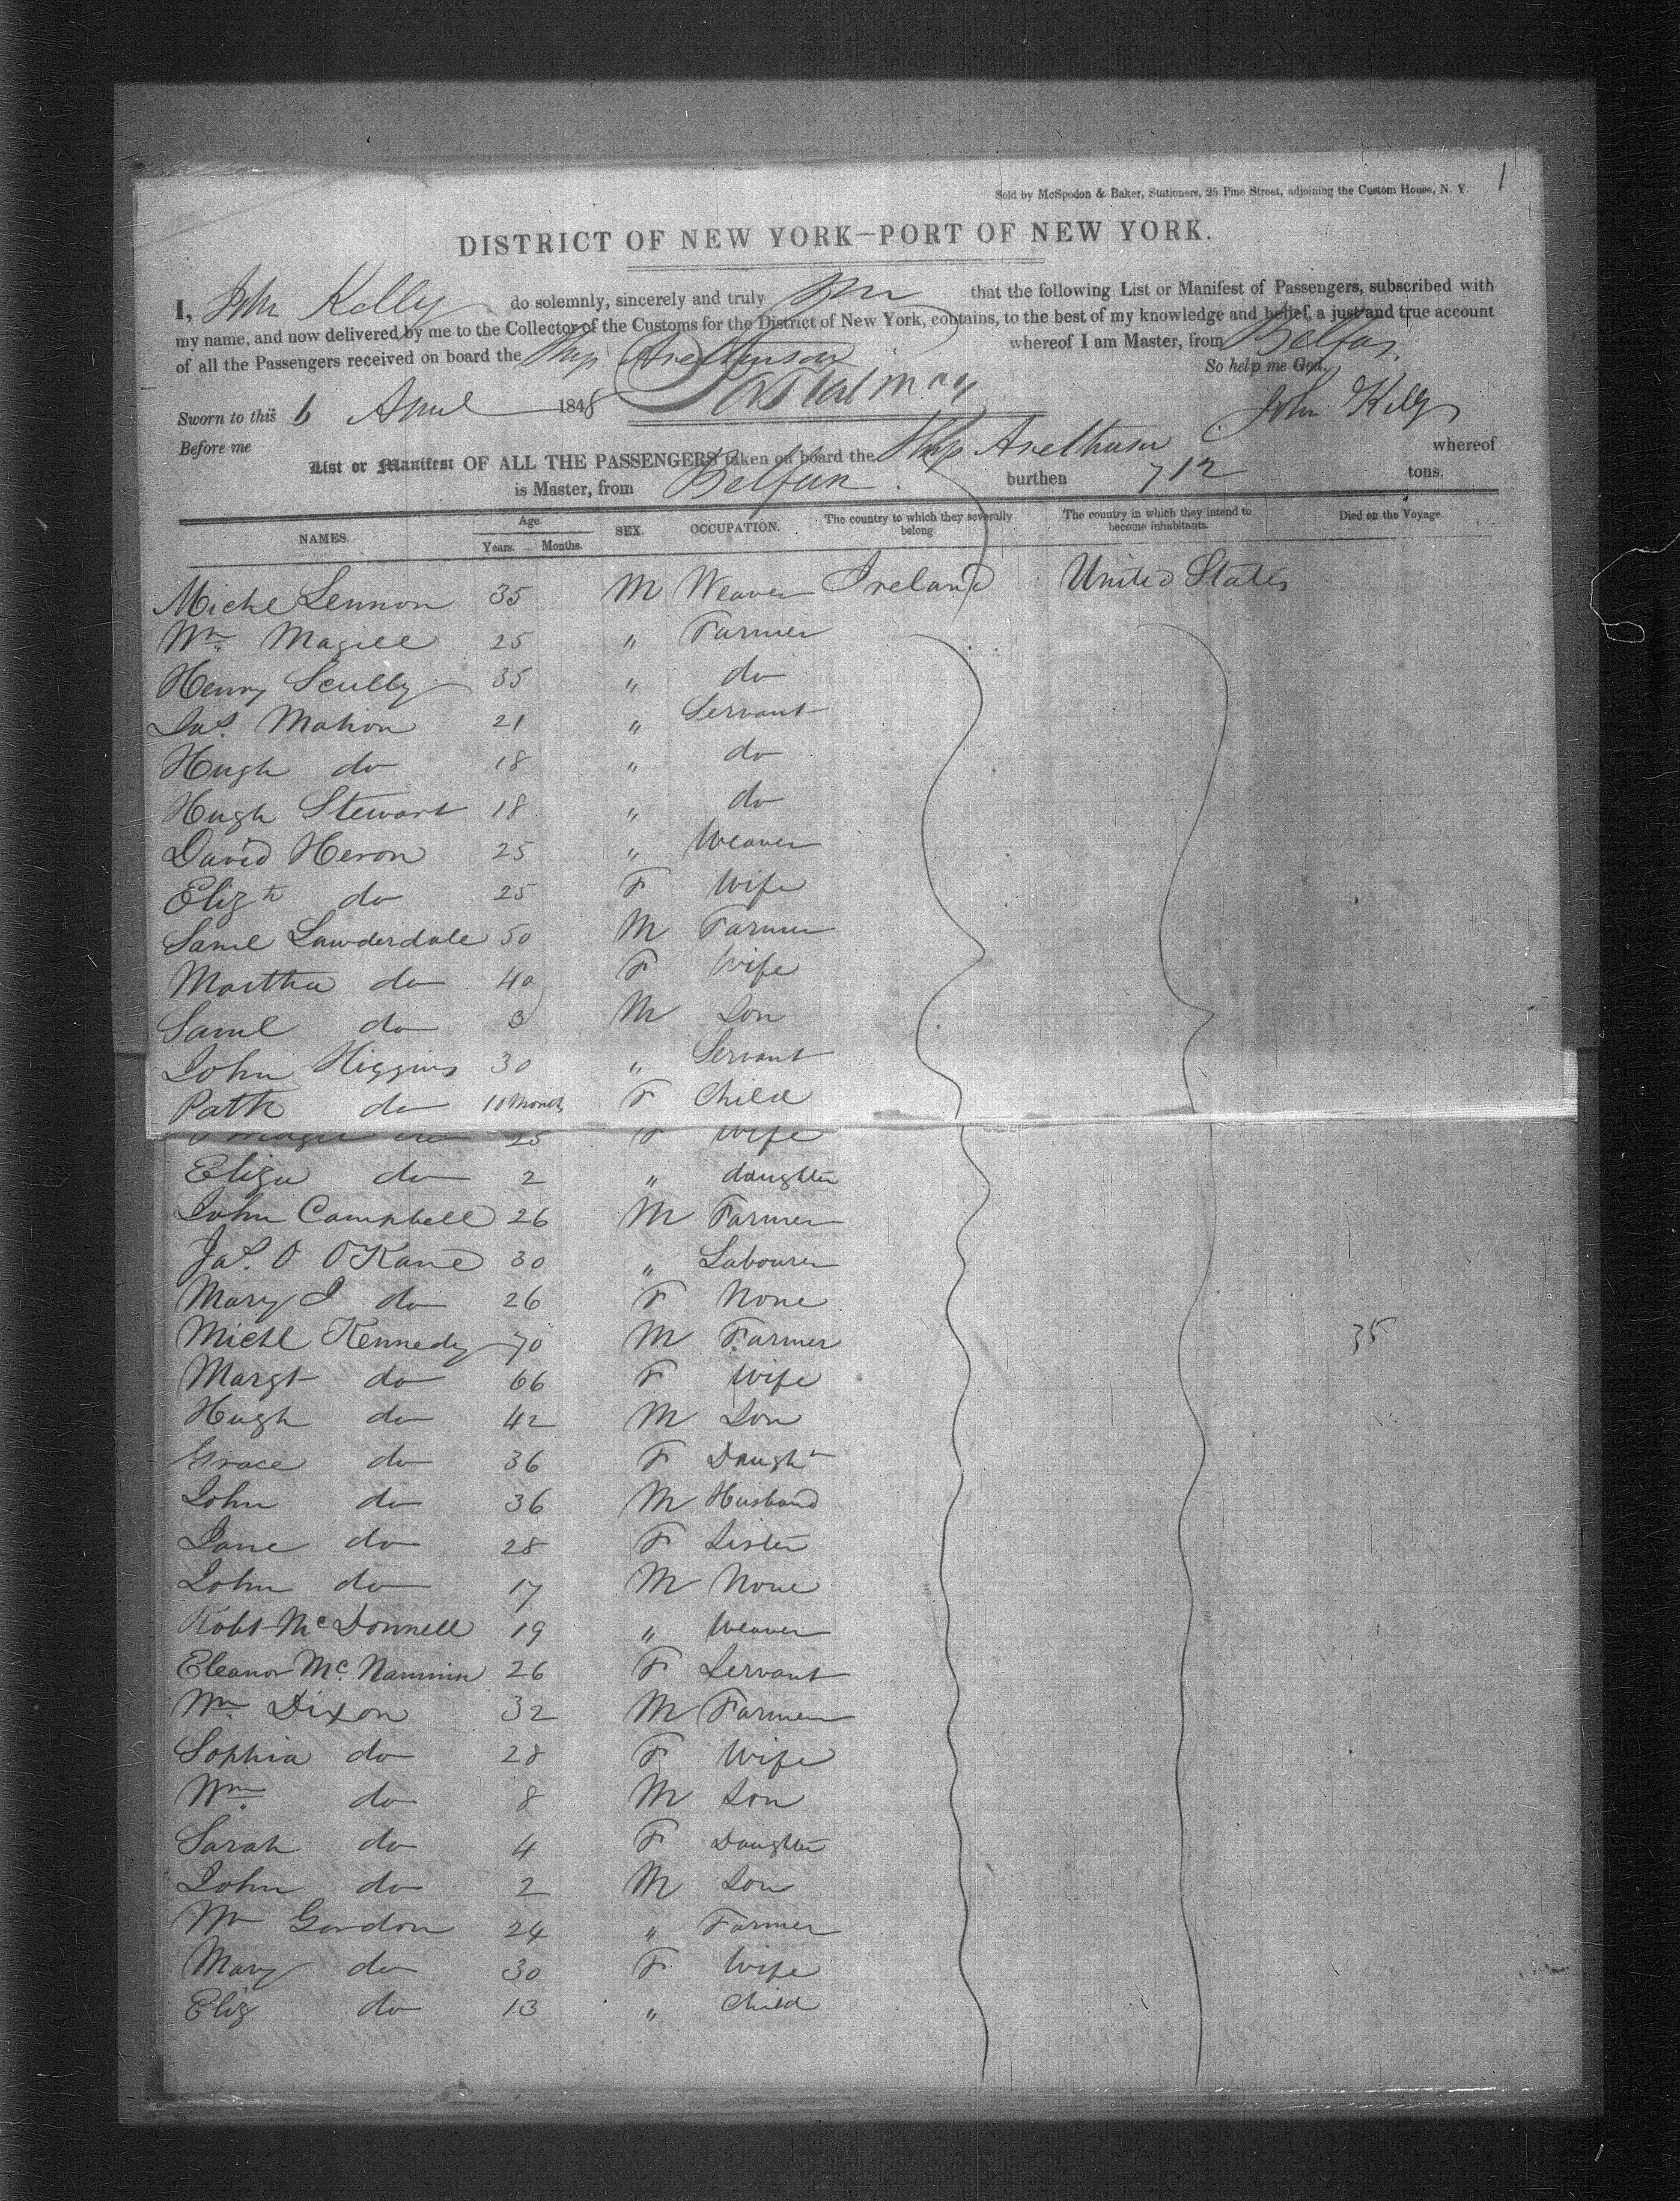 1
Sold by McSpedon & Baker, Stationers, 25 Pine Street, adjoining the Custom House, N. Y.
DISTRICT OF NEW YORK—PORT OF NEW YORK.
I, John Kelly do solemnly, sincerely and truly that the following List or Manifest of Passengers, subscribed with
my name, and now delivered by me to the Collector of the Customs for the District of New York, contains, to the best of my knowledge and belief, a just and true account
of all the Passengers received on board the Ship Arethusa whereof I am Master, from Belfast
So help me God.
Sworn to this 6 April 1848 John Kelly
Before me
List or Manifest OF ALL THE PASSENGERS taken on board the Ship Arethusa whereof
is Master, from Belfast burthen 712 tons.
NAMES. Age. Years. Months. SEX. OCCUPATION. The country to which they severally belong. The country in which they intend to become inhabitants. Died on the Voyage.
Michl Lennon 35 M Weaver Ireland United States
Wm Magill 25 " Farmer
Henry Scully 35 " do
Jas. Mahon 21 " Servant
Hugh do 18 " do
Hugh Stewart 18 " do
David Heron 25 " Weaver
Elizth do 25 F Wife
Saml Lawderdale 50 M Farmer
Martha do 40 F Wife
Saml do 3 M Son
John Higgins 30 " Servant
Patk do 10 Months F Child
do 25 F Wife
Eliza do 2 " daughter
John Campbell 26 M Farmer
Jas. O O'Kane 30 " Labourer
Mary J do 26 F None
Michl Kennedy 70 M Farmer 35
Margt do 66 F Wife
Hugh do 42 M Son
Grace do 36 F Daughr
John do 36 M Husband
Jane do 28 F Sister
John do 17 M None
Robt McDonnell 19 " Weaver
Eleanor Mc 26 F Servant
Wm Dixon 32 M Farmer
Sophia do 28 F Wife
Wm do 8 M Son
Sarah do 4 F Daughter
John do 2 M Son
Wm Gordon 24 " Farmer
Mary do 30 F Wife
Eliz do 13 " Child